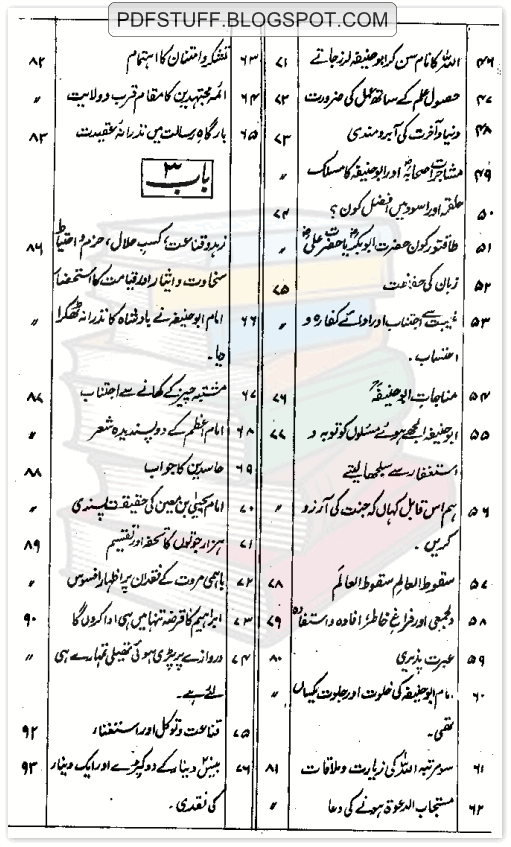 PDFSTUFF.BLOGSPOT.COM
۴۶ اللہ کا نام سن کر ابوحنیفہ لرز جاتے ۷۱
۴۷ حصول علم کے ساتھ عمل کی ضرورت ۷۲
۴۸ دنیا و آخرت کی آبرومندی ۷۳
۴۹ مشاجرات صحابہؓ اور ابوحنیفہ کا مسلک 〃
۵۰ علقمہ اور اسود میں افضل کون؟ ۷۴
۵۱ طاقتور کون حضرت ابوبکرؓ یا حضرت علیؓ 〃
۵۲ زبان کی حفاظت ۷۵
۵۳ غیبت سے اجتناب اور ادائے کفارہ و 〃
احتساب۔
۵۴ مناجات ابوحنیفہؒ ۷۶
۵۵ ابوحنیفہ الجھے ہوئے مسئلوں کو توبہ و ۷۷
استغفار سے سلجھا لیتے
۵۶ ہم اس قابل کہاں کہ جنت کی آرزو 〃
کریں۔
۵۷ سقوط العالِم سقوط العالَم ۷۸
۵۸ دلجمعی اور فراغِ خاطر، افادہ و استفادہ ۷۹
۵۹ عبرت پذیری ۸۰
۶۰ امام ابوحنیفہ کی خلوت اور جلوت یکساں 〃
تھی۔
۶۱ سو مرتبہ اللہ کی زیارت و ملاقات ۸۱
۶۲ مستجاب الدعوۃ ہونے کی دعا 〃
۶۳ تشکر و امتنان کا اہتمام ۸۲
۶۴ ائمہ مجتہدین کا مقام قرب و ولایت 〃
۶۵ بارگاہ رسالت میں نذرانۂ عقیدت ۸۳
باب ۳
زہد و قناعت، کسبِ حلال، حزم و احتیاط ۸۶
سخاوت و ایثار اور قیامت کا استحضار
۶۶ امام ابوحنیفہ نے بادشاہ کا نذرانہ ٹھکرا 〃
دیا۔
۶۷ مشتبہ چیز کے کھانے سے اجتناب ۸۷
۶۸ امام اعظم کے دو پسندیدہ شعر 〃
۶۹ حاسدین کا جواب ۸۸
۷۰ امام یحییٰ بن معین کی حقیقت پسندی 〃
۷۱ ہزار جوتوں کا تحفہ اور تقسیم ۸۹
۷۲ باہمی مروت کے فقدان پر اظہار افسوس 〃
۷۳ ابراہیم کا قرضہ تنہا میں ہی ادا کروں گا ۹۰
۷۴ دروازے پر پڑی ہوئی تھیلی تمہارے ہی 〃
لئے ہے۔
۷۵ قناعت و توکل اور استغناء ۹۲
۷۶ بیس دینار کے دو کپڑے اور ایک دینار ۹۳
کی نقدی۔